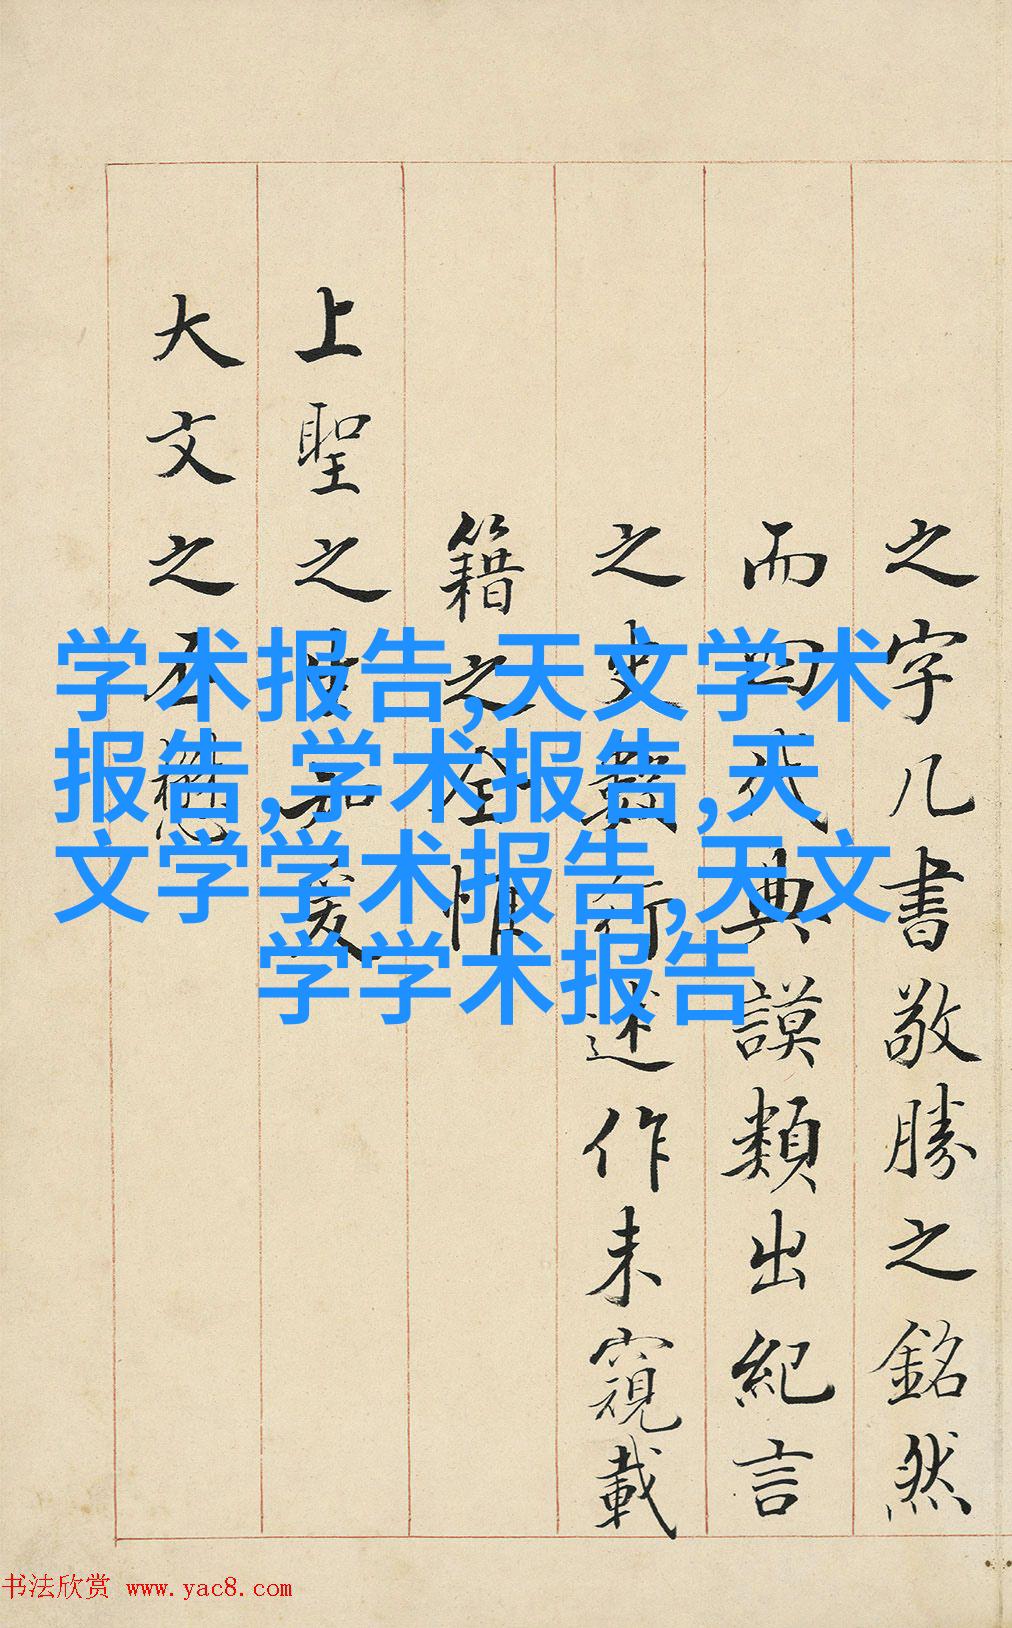 之字几書敬勝之銘然
而四代典謨類出紀言
之史數行述作未窺載
籍之全惟
上聖之
大文之丕懋
学术报告,天文学术
报告,学术报告,天
文学学术报告,天文
学学术报告
书法欣赏 www.yac8.com